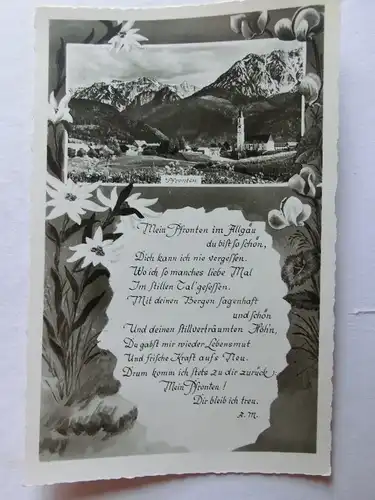 Pfronten
Mein Pfronten im Allgäu
du bist so schön,
Dich kann ich nie vergessen.
Wo ich so manches liebe Mal
Im stillen Tal gesessen.
Mit deinen Bergen sagenhaft
und schön
Und deinen stillverträumten Höh'n.
Du gabst mir wieder Lebensmut
Und frische Kraft aufs Neu.
Drum komm ich stets zu dir zurück;
Mein Pfronten!
Dir bleib ich treu.
R. M.